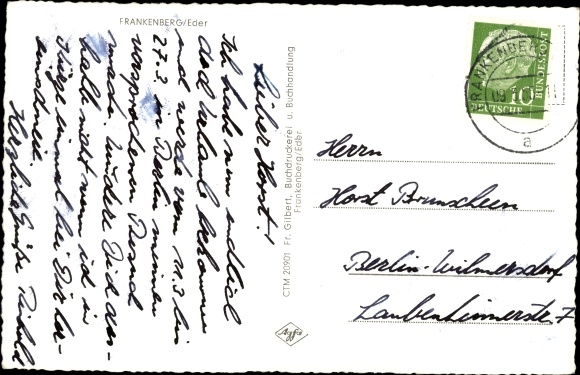 FRANKENBERG/Eder
Lieber Horst!
Ich habe nun endlich
doch Urlaub bekommen
und werde vom 11.3 bis
27.3. in Berlin meinen
versprochenen Besuch
machen. Würdere Dich des-
halb nicht wenn ich in
Kürze einmal bei Dir her-
einschneie.
Herzliche Grüße
CTM 20901 Fr. Gilbert, Buchdruckerei u. Buchhandlung
Frankenberg/Eder
Agfa
FRANKENBERG
a
10
DEUTSCHE
BUNDESPOST
Herrn
Horst
Berlin-Wilmersdorf
Laubenheimerstr. 7